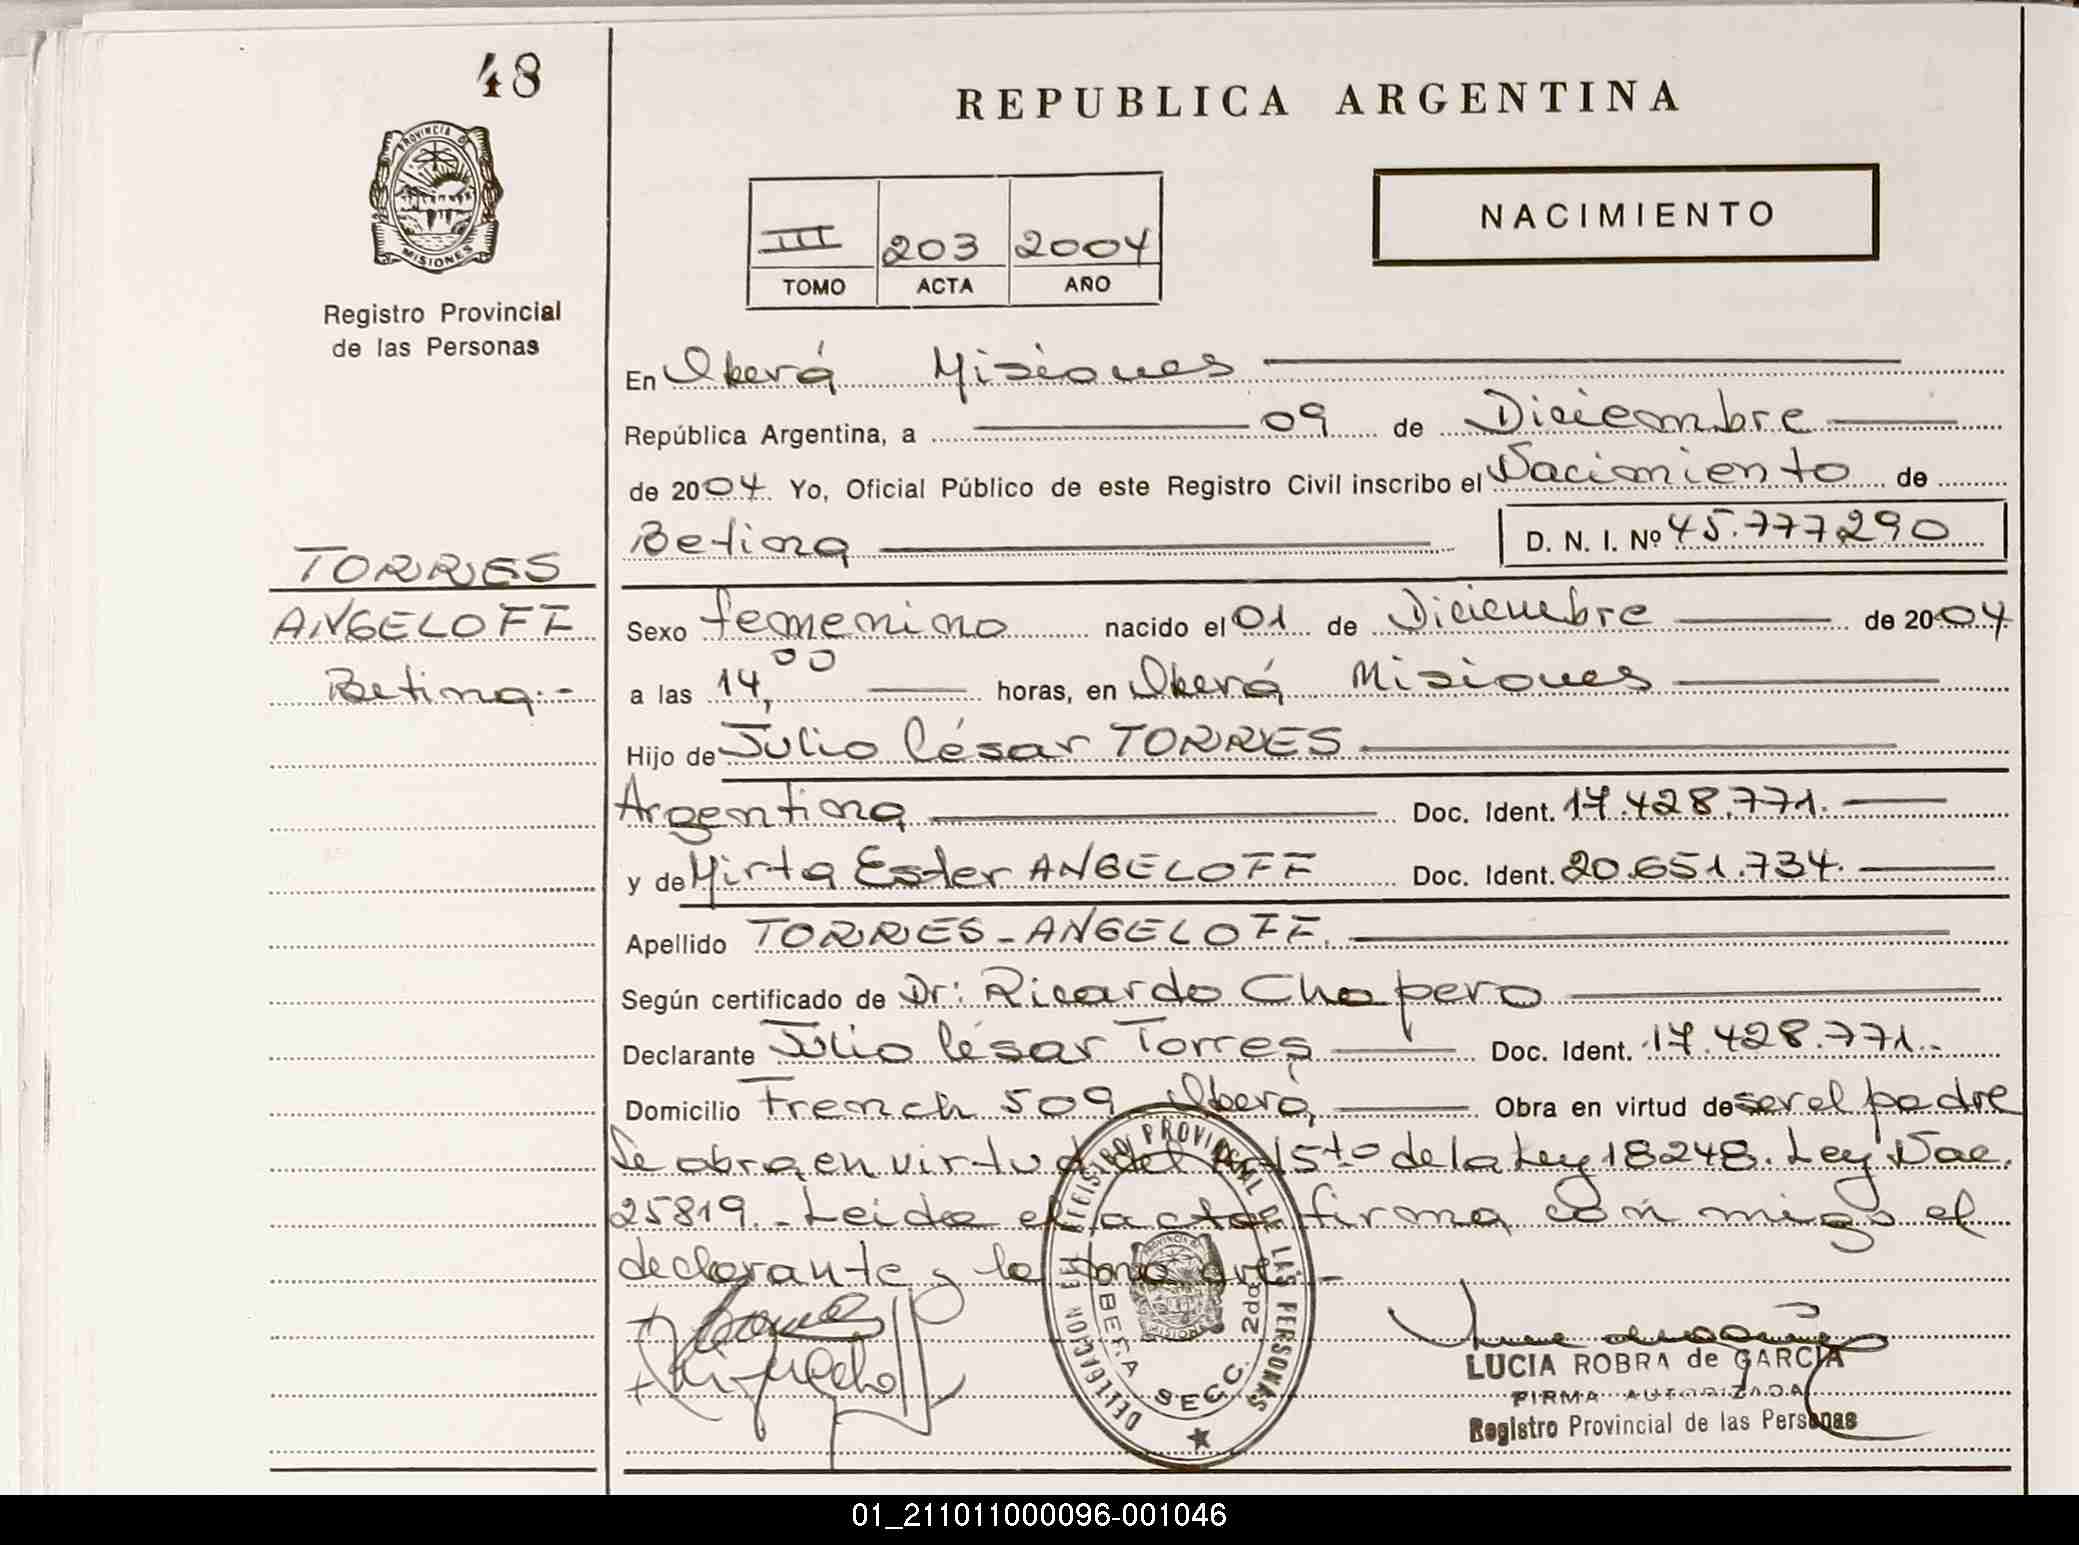 48
REPUBLICA ARGENTINA
PROVINCIA DE
MISIONES
Registro Provincial
de las Personas
III 203 2004
TOMO ACTA AÑO
NACIMIENTO
En Oberá Misiones
República Argentina, a 09 de Diciembre
de 2004 Yo, Oficial Público de este Registro Civil inscribo el Nacimiento de
Betina D. N. I. Nº 45.777290
TORRES
ANGELOFF
Betina.-
Sexo femenino nacido el 01 de Diciembre de 2004
a las 14,00 horas, en Oberá Misiones
Hijo de Julio César TORRES
Argentina Doc. Ident. 17.428.771.
y de Mirta Ester ANGELOFF Doc. Ident. 20.651.734.
Apellido TORRES - ANGELOFF.
Según certificado de Dr: Ricardo Chapero
Declarante Julio César Torres Doc. Ident. 17.428.771.-
Domicilio French 509 Oberá, Obra en virtud de ser el padre
Se obra en virtud del 15to de la Ley 18248. Ley Nac.
25819.- Leida el acta firma con migo el
declarante y la madre.-
DELEGACION DEL REGISTRO PROVINCIAL DE LAS PERSONAS
OBERA SECC. 2da
PROVINCIA DE
MISIONES
LUCIA ROBRA de GARCIA
FIRMA AUTORIZADA
Registro Provincial de las Personas
01_211011000096-001046